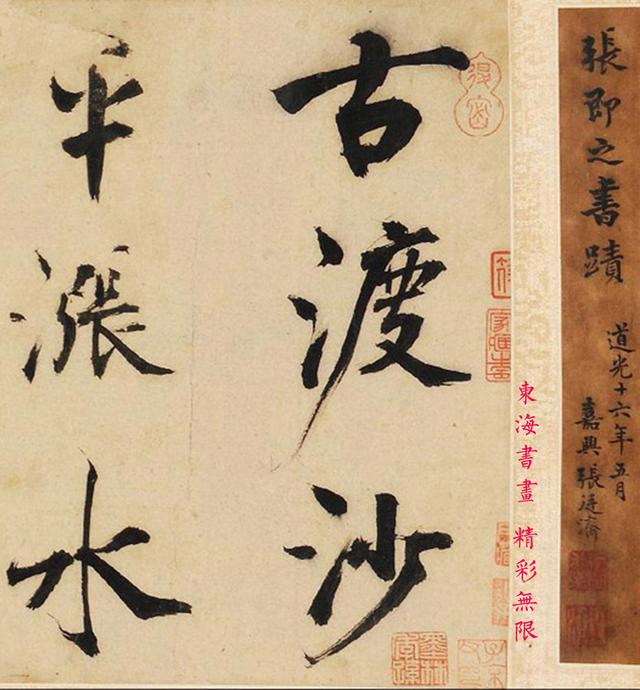 張即之書蹟
道光十六年五月
嘉興張廷濟
東海書畫 精彩無限
古渡沙
平漲水